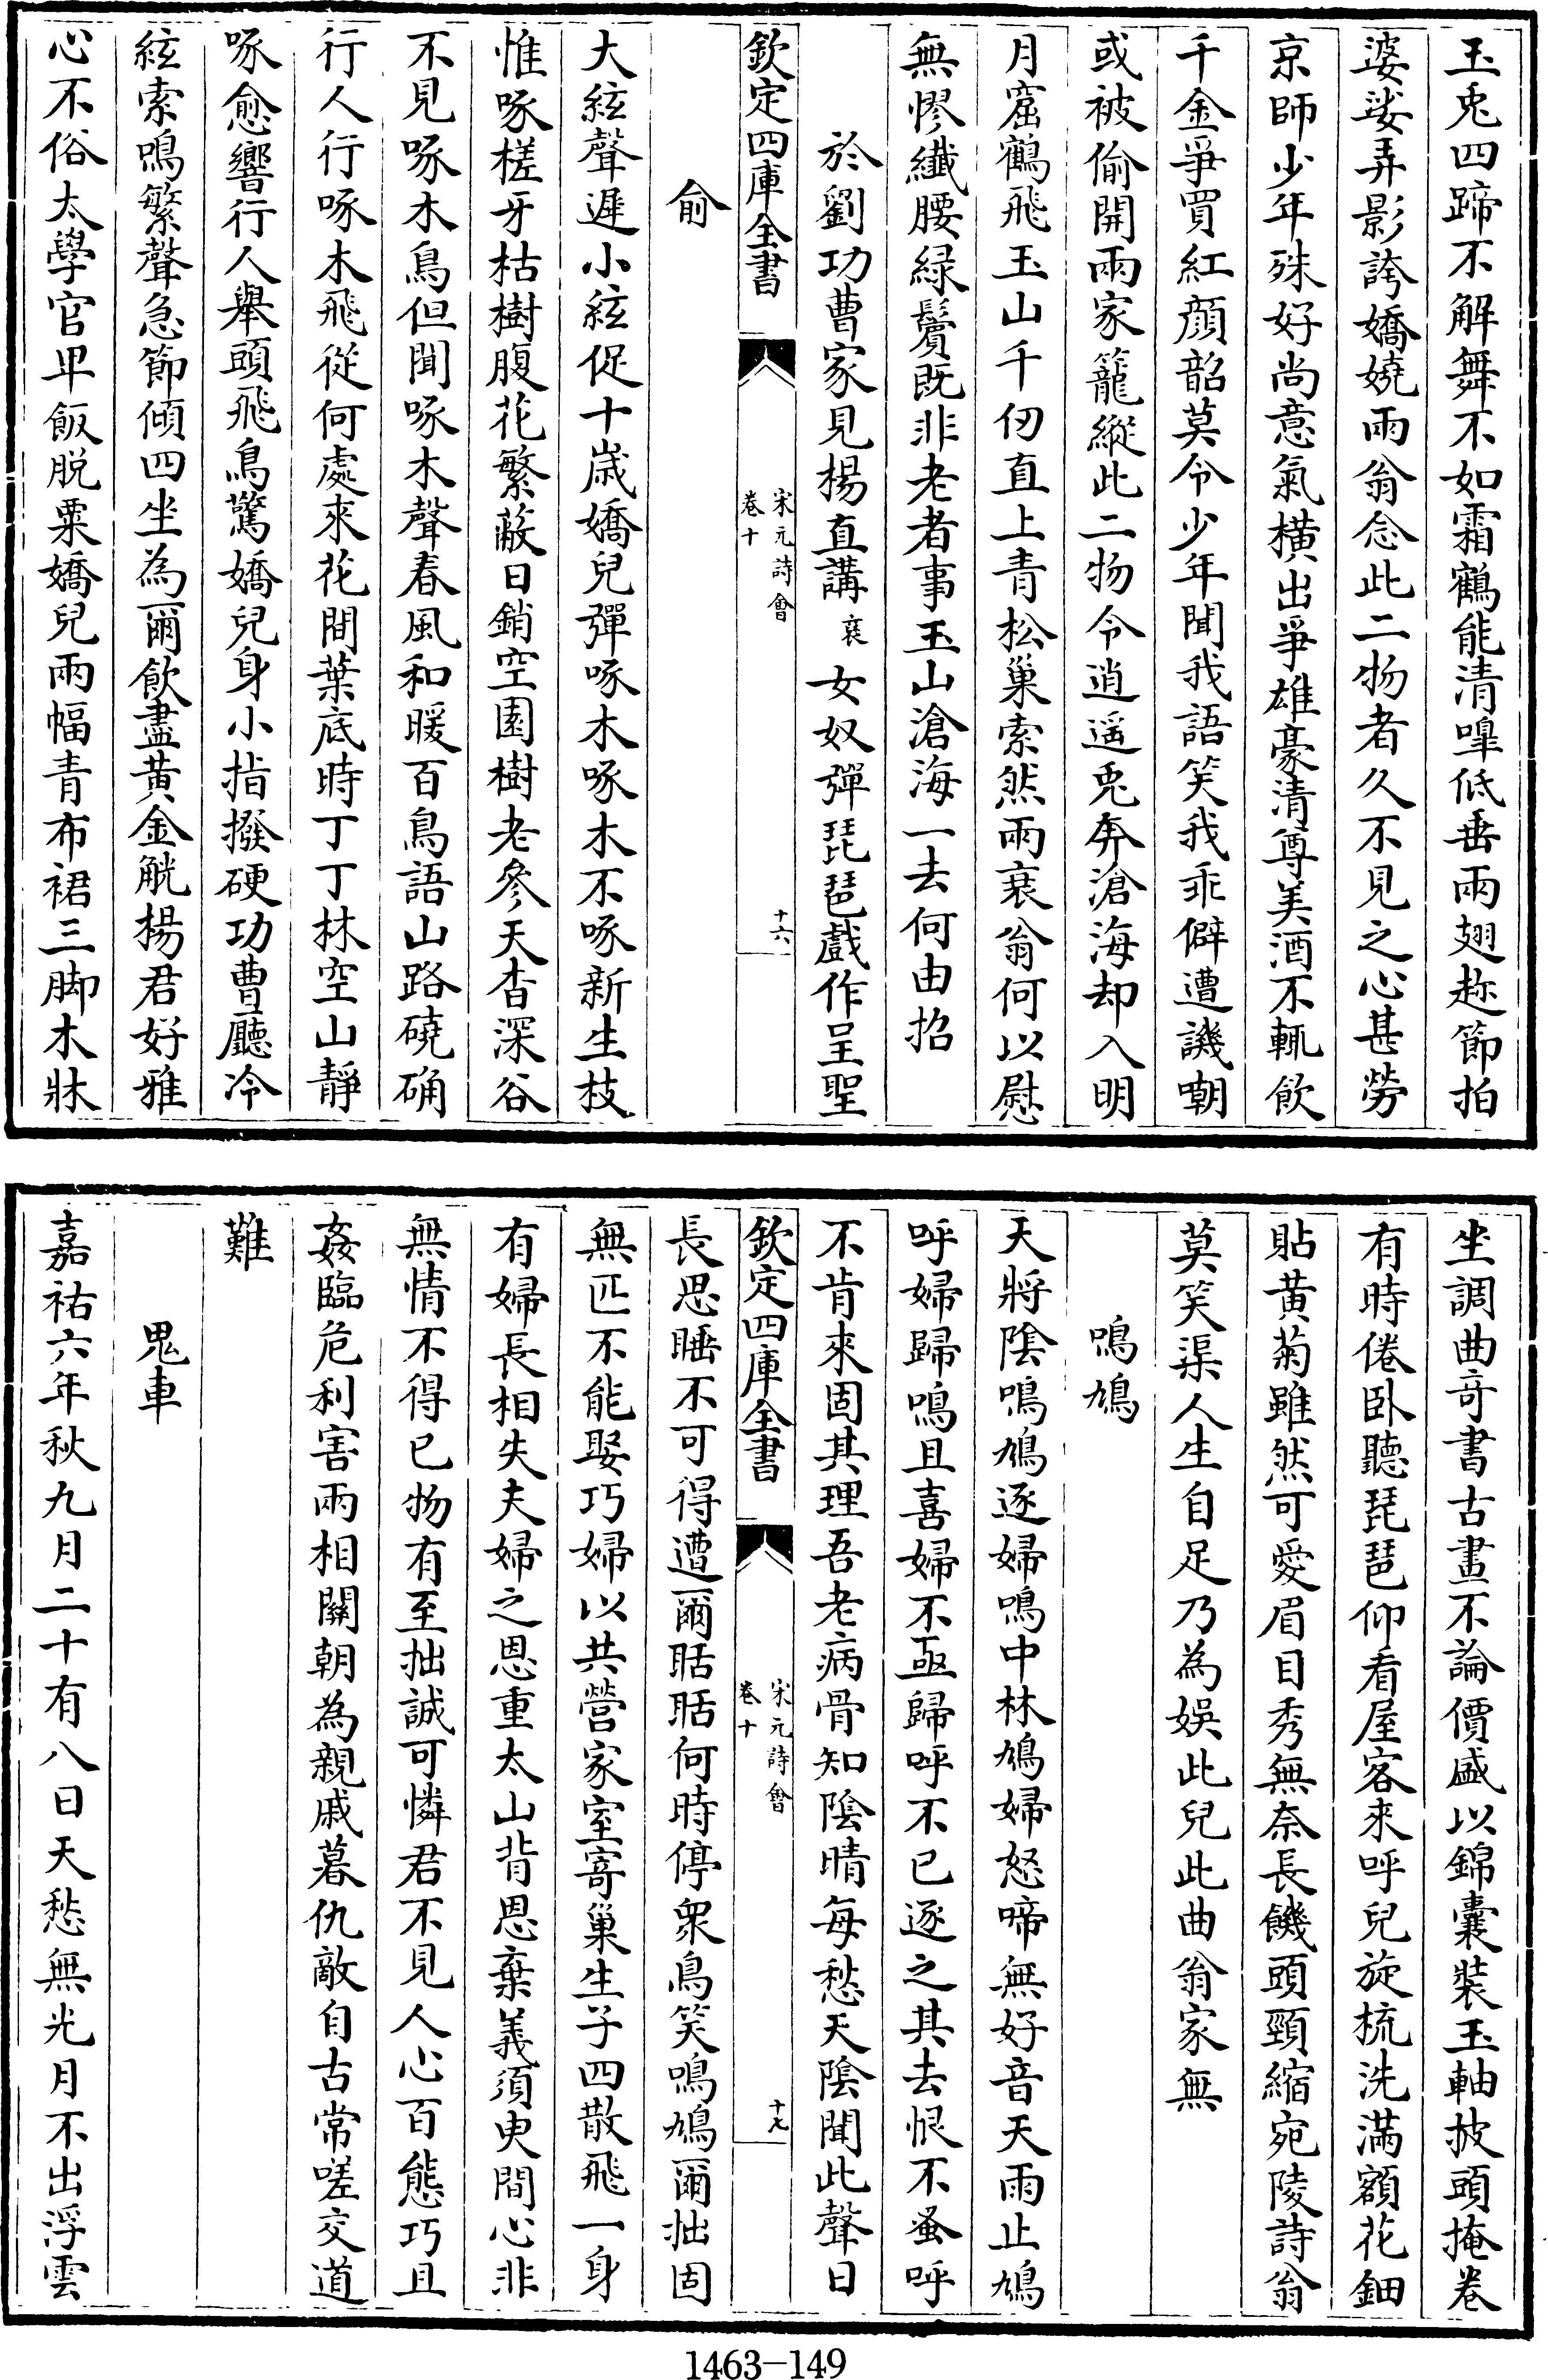 玉兎四蹄不解舞不如霜鶴能清嘷低垂兩翅趂節拍
婆娑弄影誇嬌嬈兩翁念此二物者久不見之心甚勞
京師少年殊好尚意氣横出爭雄豪清尊美酒不輒飲
千金爭買紅顔韶莫令少年聞我語笑我乖僻遭譏嘲
或被偷開兩家籠縱此二物令逍遥兎奔滄海却入明
月窟鶴飛玉山千仞直上青松巢索然兩衰翁何以慰
無憀纖腰緑鬢既非老者事玉山滄海一去何由招
於劉功曹家見楊直講裒女奴彈琵琶戲作呈聖
欽定四庫全書
宋元詩會
卷十
十六
俞
大絃聲遲小絃促十歲嬌兒彈啄木啄木不啄新生枝
惟啄槎牙枯樹腹花繁蔽日銷空園樹老參天杳深谷
不見啄木鳥但聞啄木聲春風和暖百鳥語山路磽确
行人行啄木飛從何處來花間葉底時丁丁林空山靜
啄愈響行人舉頭飛鳥驚嬌兒身小指撥硬功曹廳冷
絃索鳴繁聲急節傾四坐為爾飲盡黄金觥楊君好雅
心不俗太學官卑飯脱粟嬌兒兩幅青布裙三脚木牀
坐調曲奇書古畫不論價盛以錦囊裝玉軸披頭掩卷
有時倦卧聽琵琶仰看屋客來呼兒旋梳洗滿額花鈿
貼黄菊雖然可愛眉目秀無奈長饑頭頸縮宛陵詩翁
莫笑渠人生自足乃為娱此兒此曲翁家無
鳴鳩
天將陰鳴鳩逐婦鳴中林鳩婦怒啼無好音天雨止鳩
呼婦歸鳴且喜婦不亟歸呼不已逐之其去恨不蚤呼
不肯來固其理吾老病骨知陰晴每愁天陰聞此聲日
欽定四庫全書
宋元詩會
卷十
十七
長思睡不可得遭爾聒聒何時停衆鳥笑鳴鳩爾拙固
無匹不能娶巧婦以共營家室寄巢生子四散飛一身
有婦長相失夫婦之恩重太山背恩棄義須臾間心非
無情不得已物有至拙誠可憐君不見人心百態巧且
姦臨危利害兩相關朝為親戚暮仇敵自古常嗟交道
難
鬼車
嘉祐六年秋九月二十有八日天愁無光月不出浮雲
1463-149